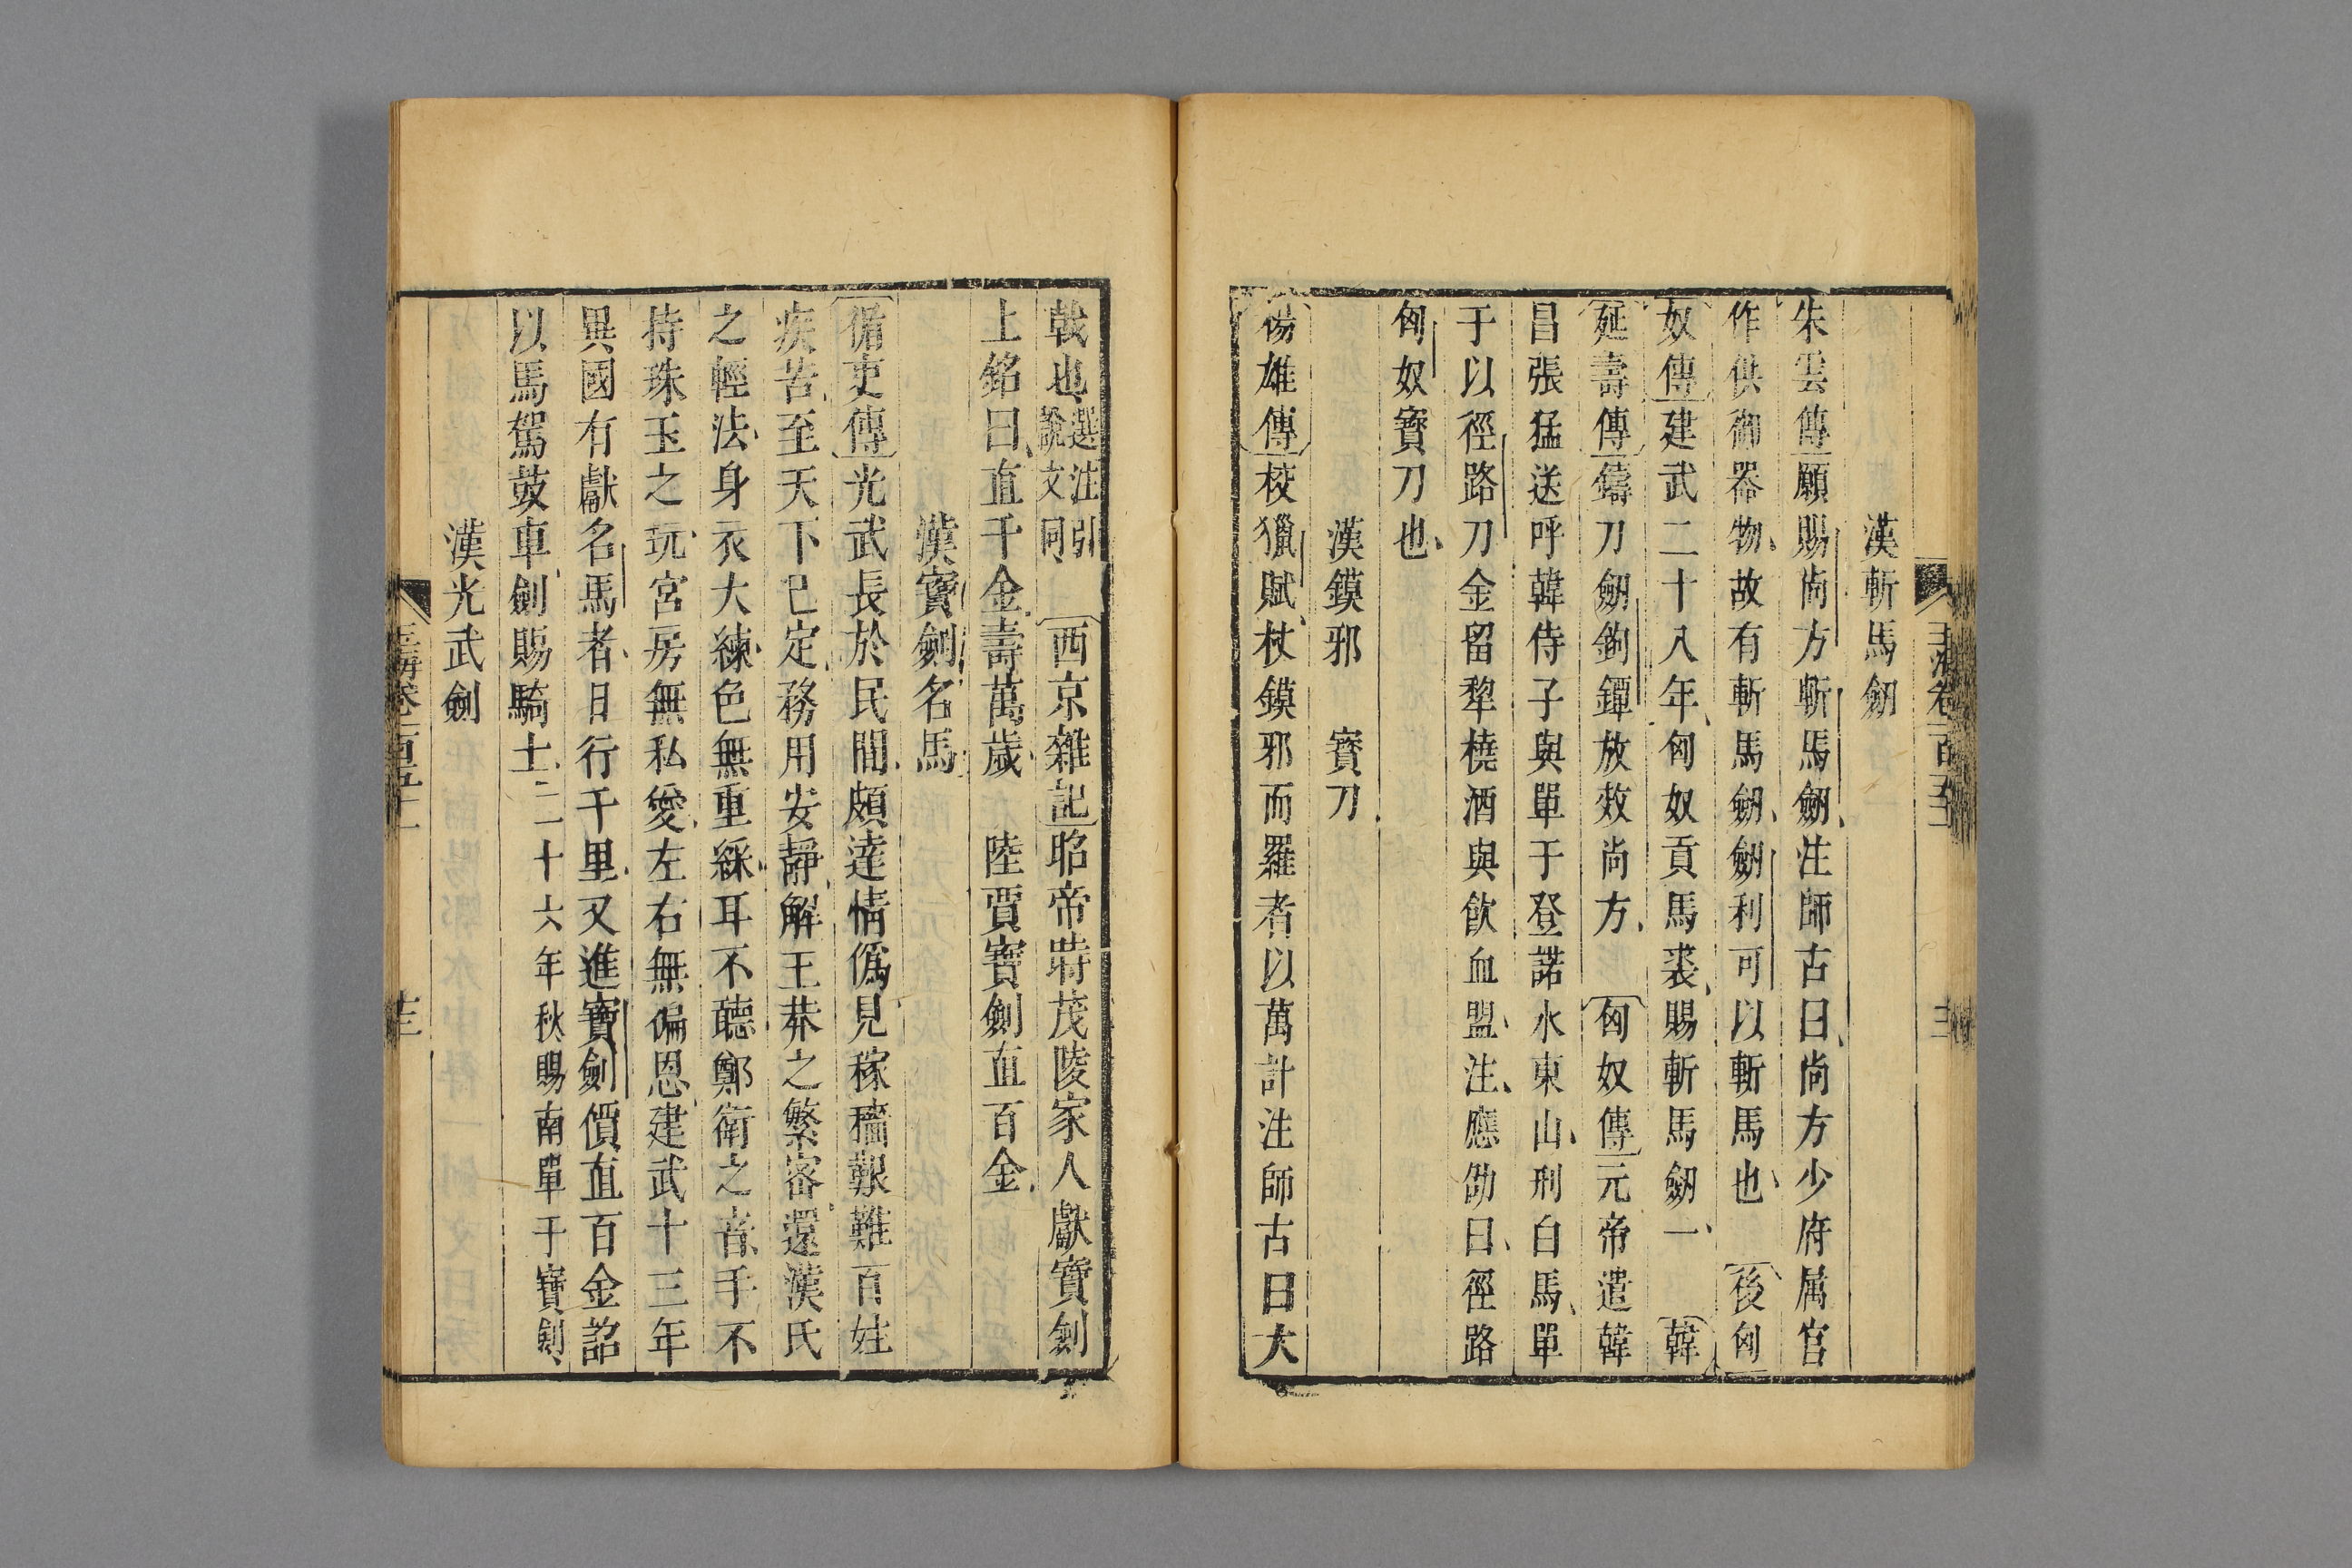 漢斬馬劒
朱雲傳願賜尚方斬馬劒注師古曰尚方少府属官
作供御器物故有斬馬劒劒利可以斬馬也後匈
奴傳建武二十八年匈奴貢馬裘賜斬馬劒一韓
延壽傳鑄刀劒鉤鐔放效尚方匈奴傳元帝遣韓
昌張猛送呼韓侍子與單于登諾水東山刑白馬單
于以徑路刀金留犂橈酒與飲血盟注應劭曰徑路
匈奴寳刀也
漢鏌邪 寳刀
楊雄傳校獵賦杖鏌邪而羅者以萬計注師古曰大
戟也選注引說文同西京雜記昭帝時茂陵家人獻寶劍
上銘曰直千金壽萬歲 陸賈寶劍直百金
漢寶劍名馬
循吏傳光武長於民間頗達情僞見稼穡艱難百姓
疾苦至天下已定務用安靜解王莽之繁密還漢氏
之輕法身衣大練色無重綵耳不聽鄭衛之音手不
持珠玉之玩宮房無私愛左右無偏恩建武十三年
異國有獻名馬者日行千里又進寶劍價直百金詔
以馬駕鼓車劍賜騎士二十六年秋賜南單于寶劍
漢光武劍
玉海卷一百五十一